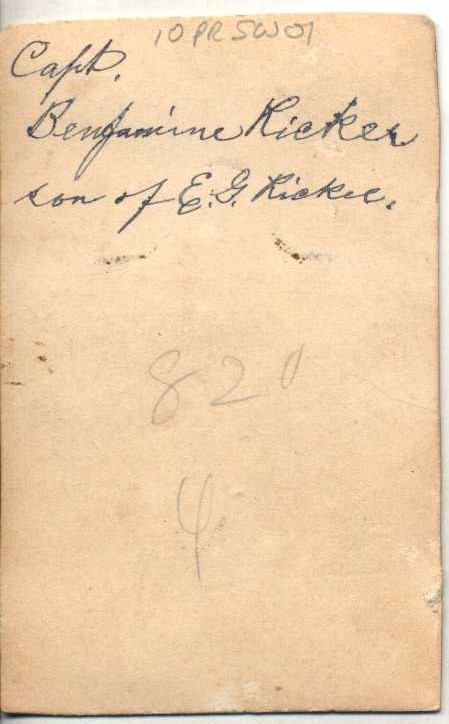 10PRSW01
Capt.
Benjamine Ricker
son of E. G. Ricker.
820
4